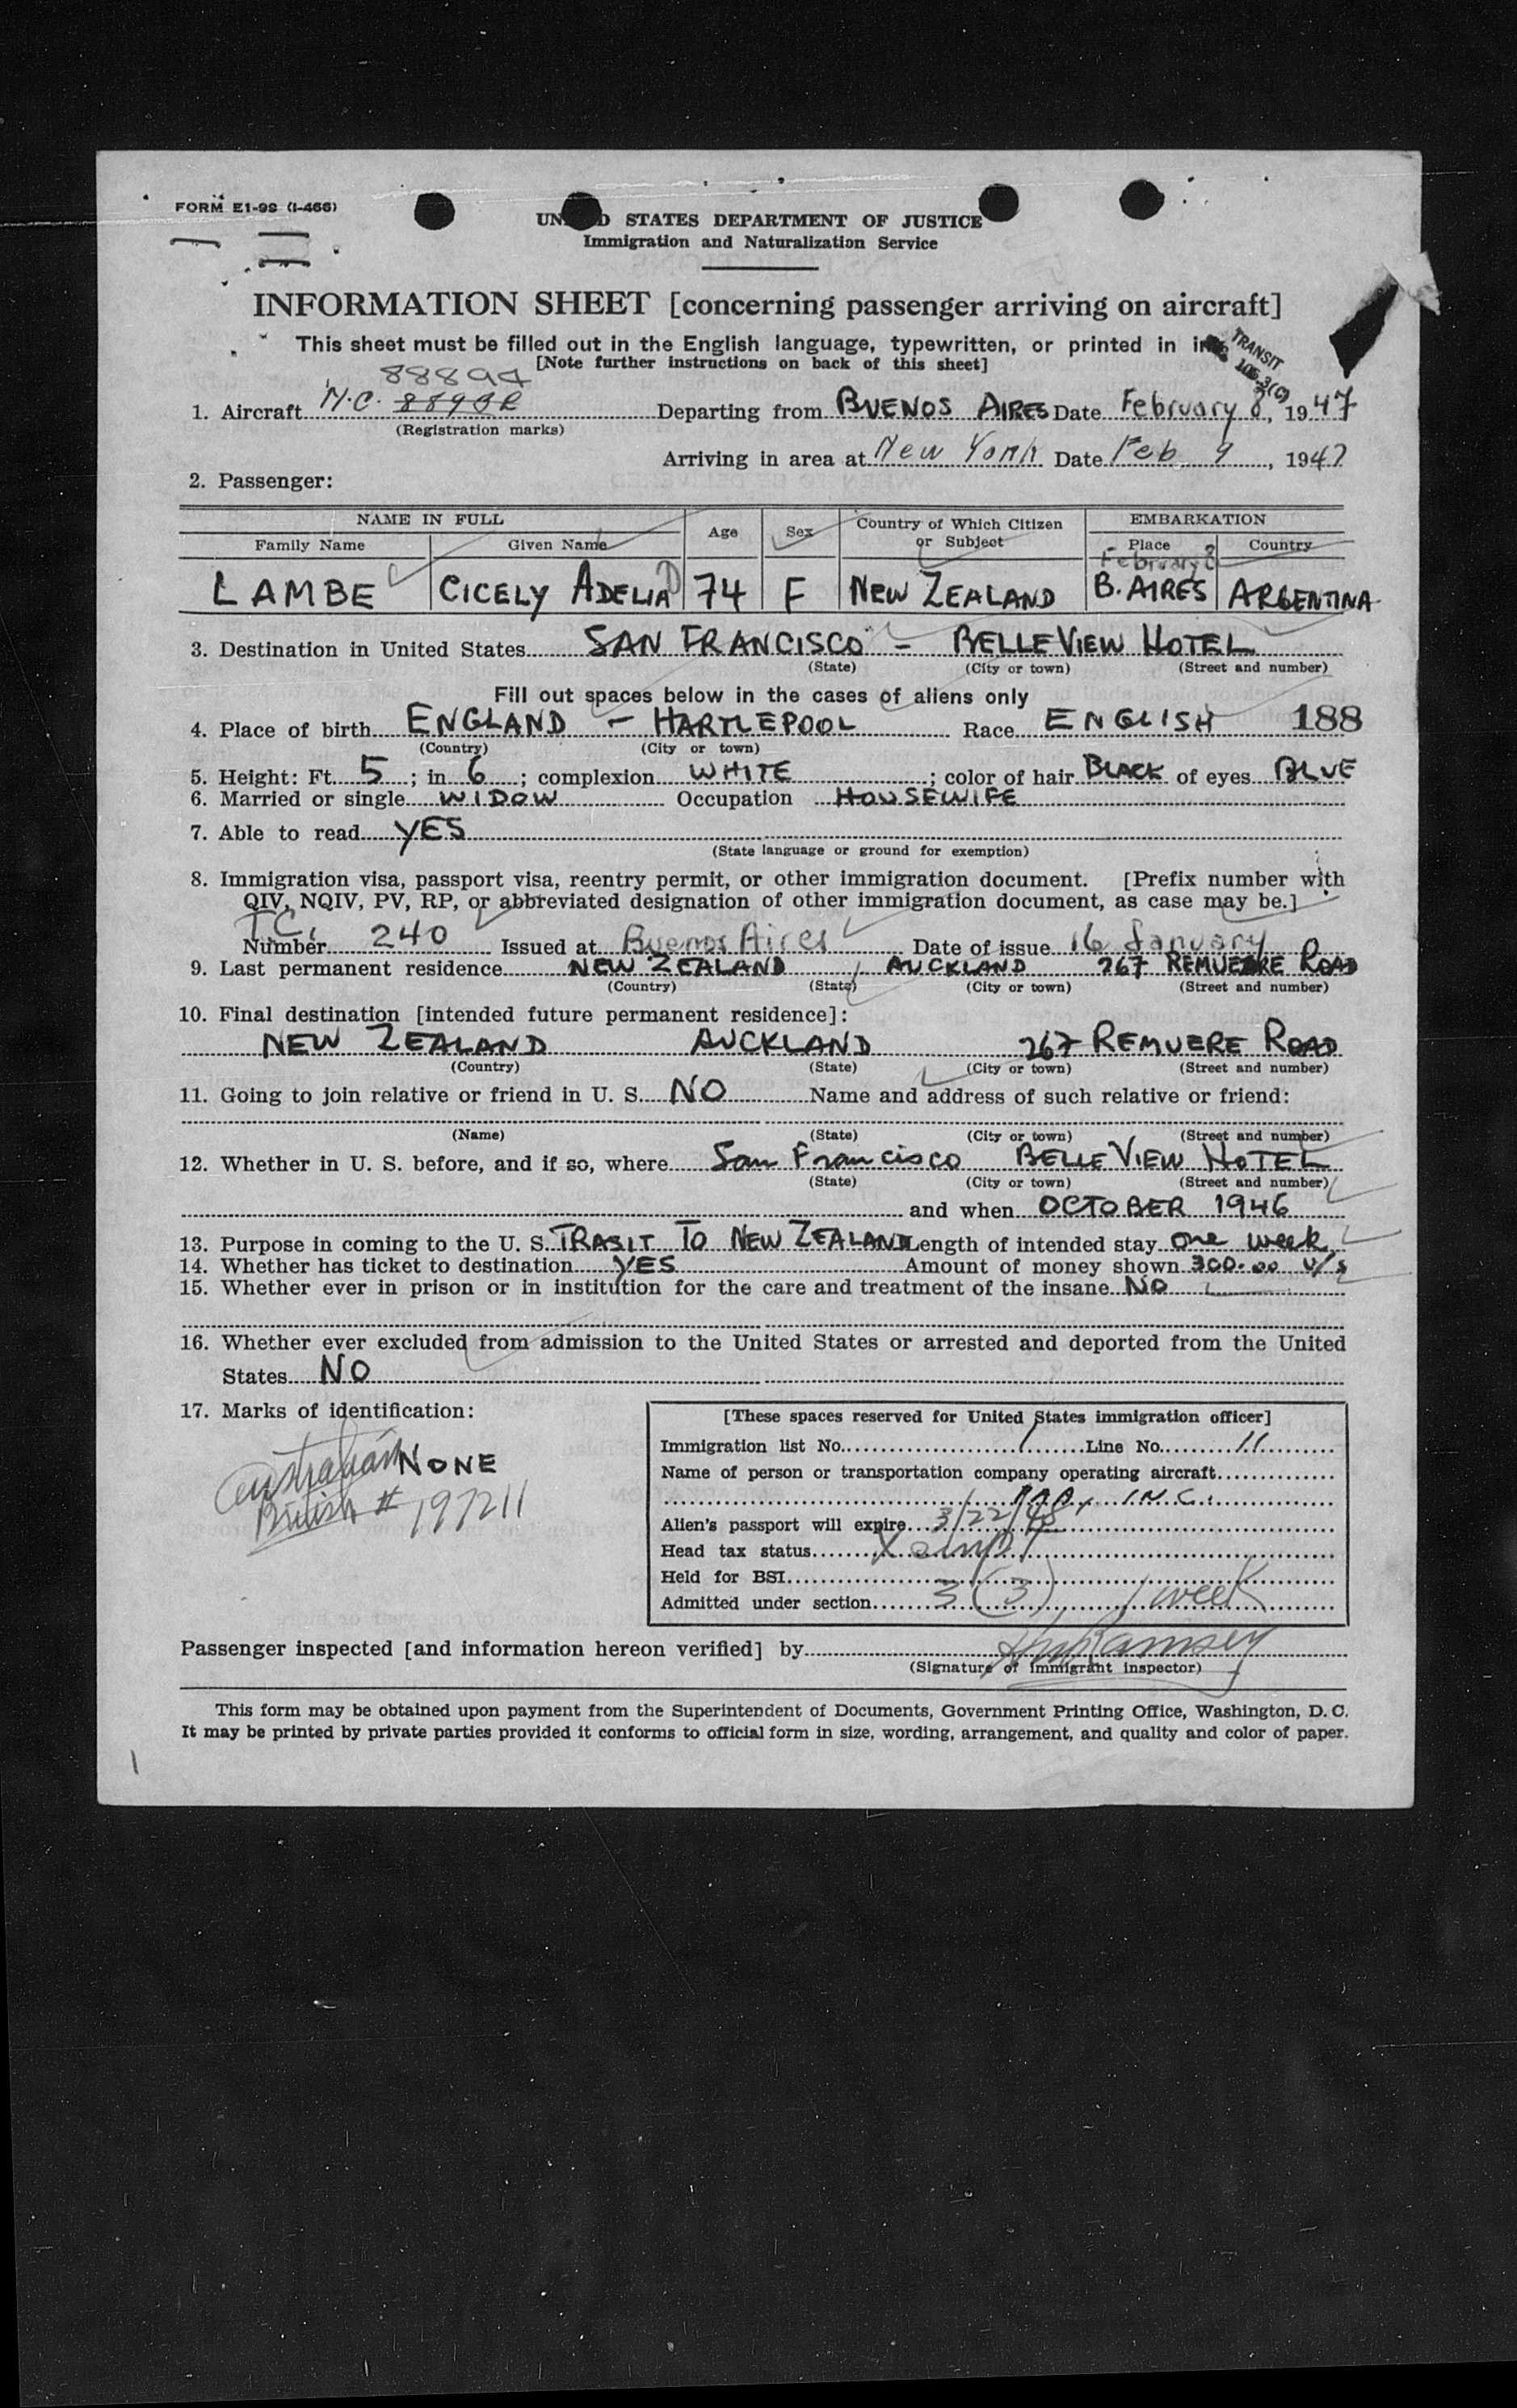 FORM E1-99 (I-466)
UNITED STATES DEPARTMENT OF JUSTICE
Immigration and Naturalization Service
INFORMATION SHEET [concerning passenger arriving on aircraft]
This sheet must be filled out in the English language, typewritten, or printed in
[Note further instructions on back of this sheet]
TRANSIT
88894
1. Aircraft N.C. Departing from BUENOS AIRES Date February 8, 1947
(Registration marks)
Arriving in area at New York Date Feb 9, 1947
2. Passenger:
NAME IN FULL Age Sex Country of Which Citizen or Subject EMBARKATION
Family Name Given Name Place Country
February 8
LAMBE CICELY ADELIA 74 F NEW ZEALAND B. AIRES ARGENTINA
3. Destination in United States SAN FRANCISCO - BELLEVIEW HOTEL
(State) (City or town) (Street and number)
Fill out spaces below in the cases of aliens only
4. Place of birth ENGLAND - HARTLEPOOL Race ENGLISH 188
(Country) (City or town)
5. Height: Ft. 5; in 6; complexion WHITE; color of hair BLACK of eyes BLUE
6. Married or single WIDOW Occupation HOUSEWIFE
7. Able to read YES
(State language or ground for exemption)
8. Immigration visa, passport visa, reentry permit, or other immigration document. [Prefix number with
QIV, NQIV, PV, RP, or abbreviated designation of other immigration document, as case may be.]
T.C.
Number 240 Issued at Buenos Aires Date of issue 16 January
9. Last permanent residence NEW ZEALAND AUCKLAND 267 REMUERE ROAD
(Country) (State) (City or town) (Street and number)
10. Final destination [intended future permanent residence]:
NEW ZEALAND AUCKLAND 267 REMUERE ROAD
(Country) (State) (City or town) (Street and number)
11. Going to join relative or friend in U. S. NO Name and address of such relative or friend:
(Name) (State) (City or town) (Street and number)
12. Whether in U. S. before, and if so, where San Francisco BELLE VIEW HOTEL
(State) (City or town) (Street and number)
and when OCTOBER 1946
13. Purpose in coming to the U. S. TRASIT TO NEW ZEALAND Length of intended stay one week
14. Whether has ticket to destination YES Amount of money shown 300.00 U/S
15. Whether ever in prison or in institution for the care and treatment of the insane NO
16. Whether ever excluded from admission to the United States or arrested and deported from the United
States NO
17. Marks of identification:
NONE
Australian
British # 197211
[These spaces reserved for United States immigration officer]
Immigration list No. 1 Line No. 11
Name of person or transportation company operating aircraft
PAA, INC.
Alien's passport will expire 3/22/48
Head tax status
Held for BSI
Admitted under section 3 (3) 1 week
Passenger inspected [and information hereon verified] by Ramsey
(Signature of immigrant inspector)
This form may be obtained upon payment from the Superintendent of Documents, Government Printing Office, Washington, D. C.
It may be printed by private parties provided it conforms to official form in size, wording, arrangement, and quality and color of paper.